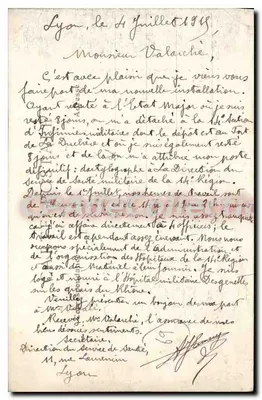 Lyon, le 4 Juillet 1915
Monsieur Valarché,
C'est avec plaisir que je viens vous
faire part de ma nouvelle installation.
Ayant resté à l'Etat Major où je suis
resté 8 jours, on m'a détaché à la 14e Section
d'Infirmiers militaires dont le dépôt est au Fort
de La Duchère et où je suis également resté
8 jours et de là on m'a attribué mon poste
définitif : dactylographe à la Direction du
Service de Santé militaire de la 14e Région.
Depuis le 1er Juillet, mes heures de travail sont
de
je suis assez tranquille
car j'ai affaire directement à 4 officiers; le
travail est cependant assez
Nous nous
occupons spécialement de l'administration et
de l'organisation des Hôpitaux de la 14e Région
et aussi du Matériel à leur fournir. Je suis
logé et nourri à l'Hôpital militaire Desgenettes
sur les quais du Rhône.
Veuillez présenter un bonjour de ma part
à Mme Valarché.
Recevez, Mr Valarché, l'assurance de mes
sentiments.
Secrétaire,
Direction du Service de Santé,
11, rue
Lyon